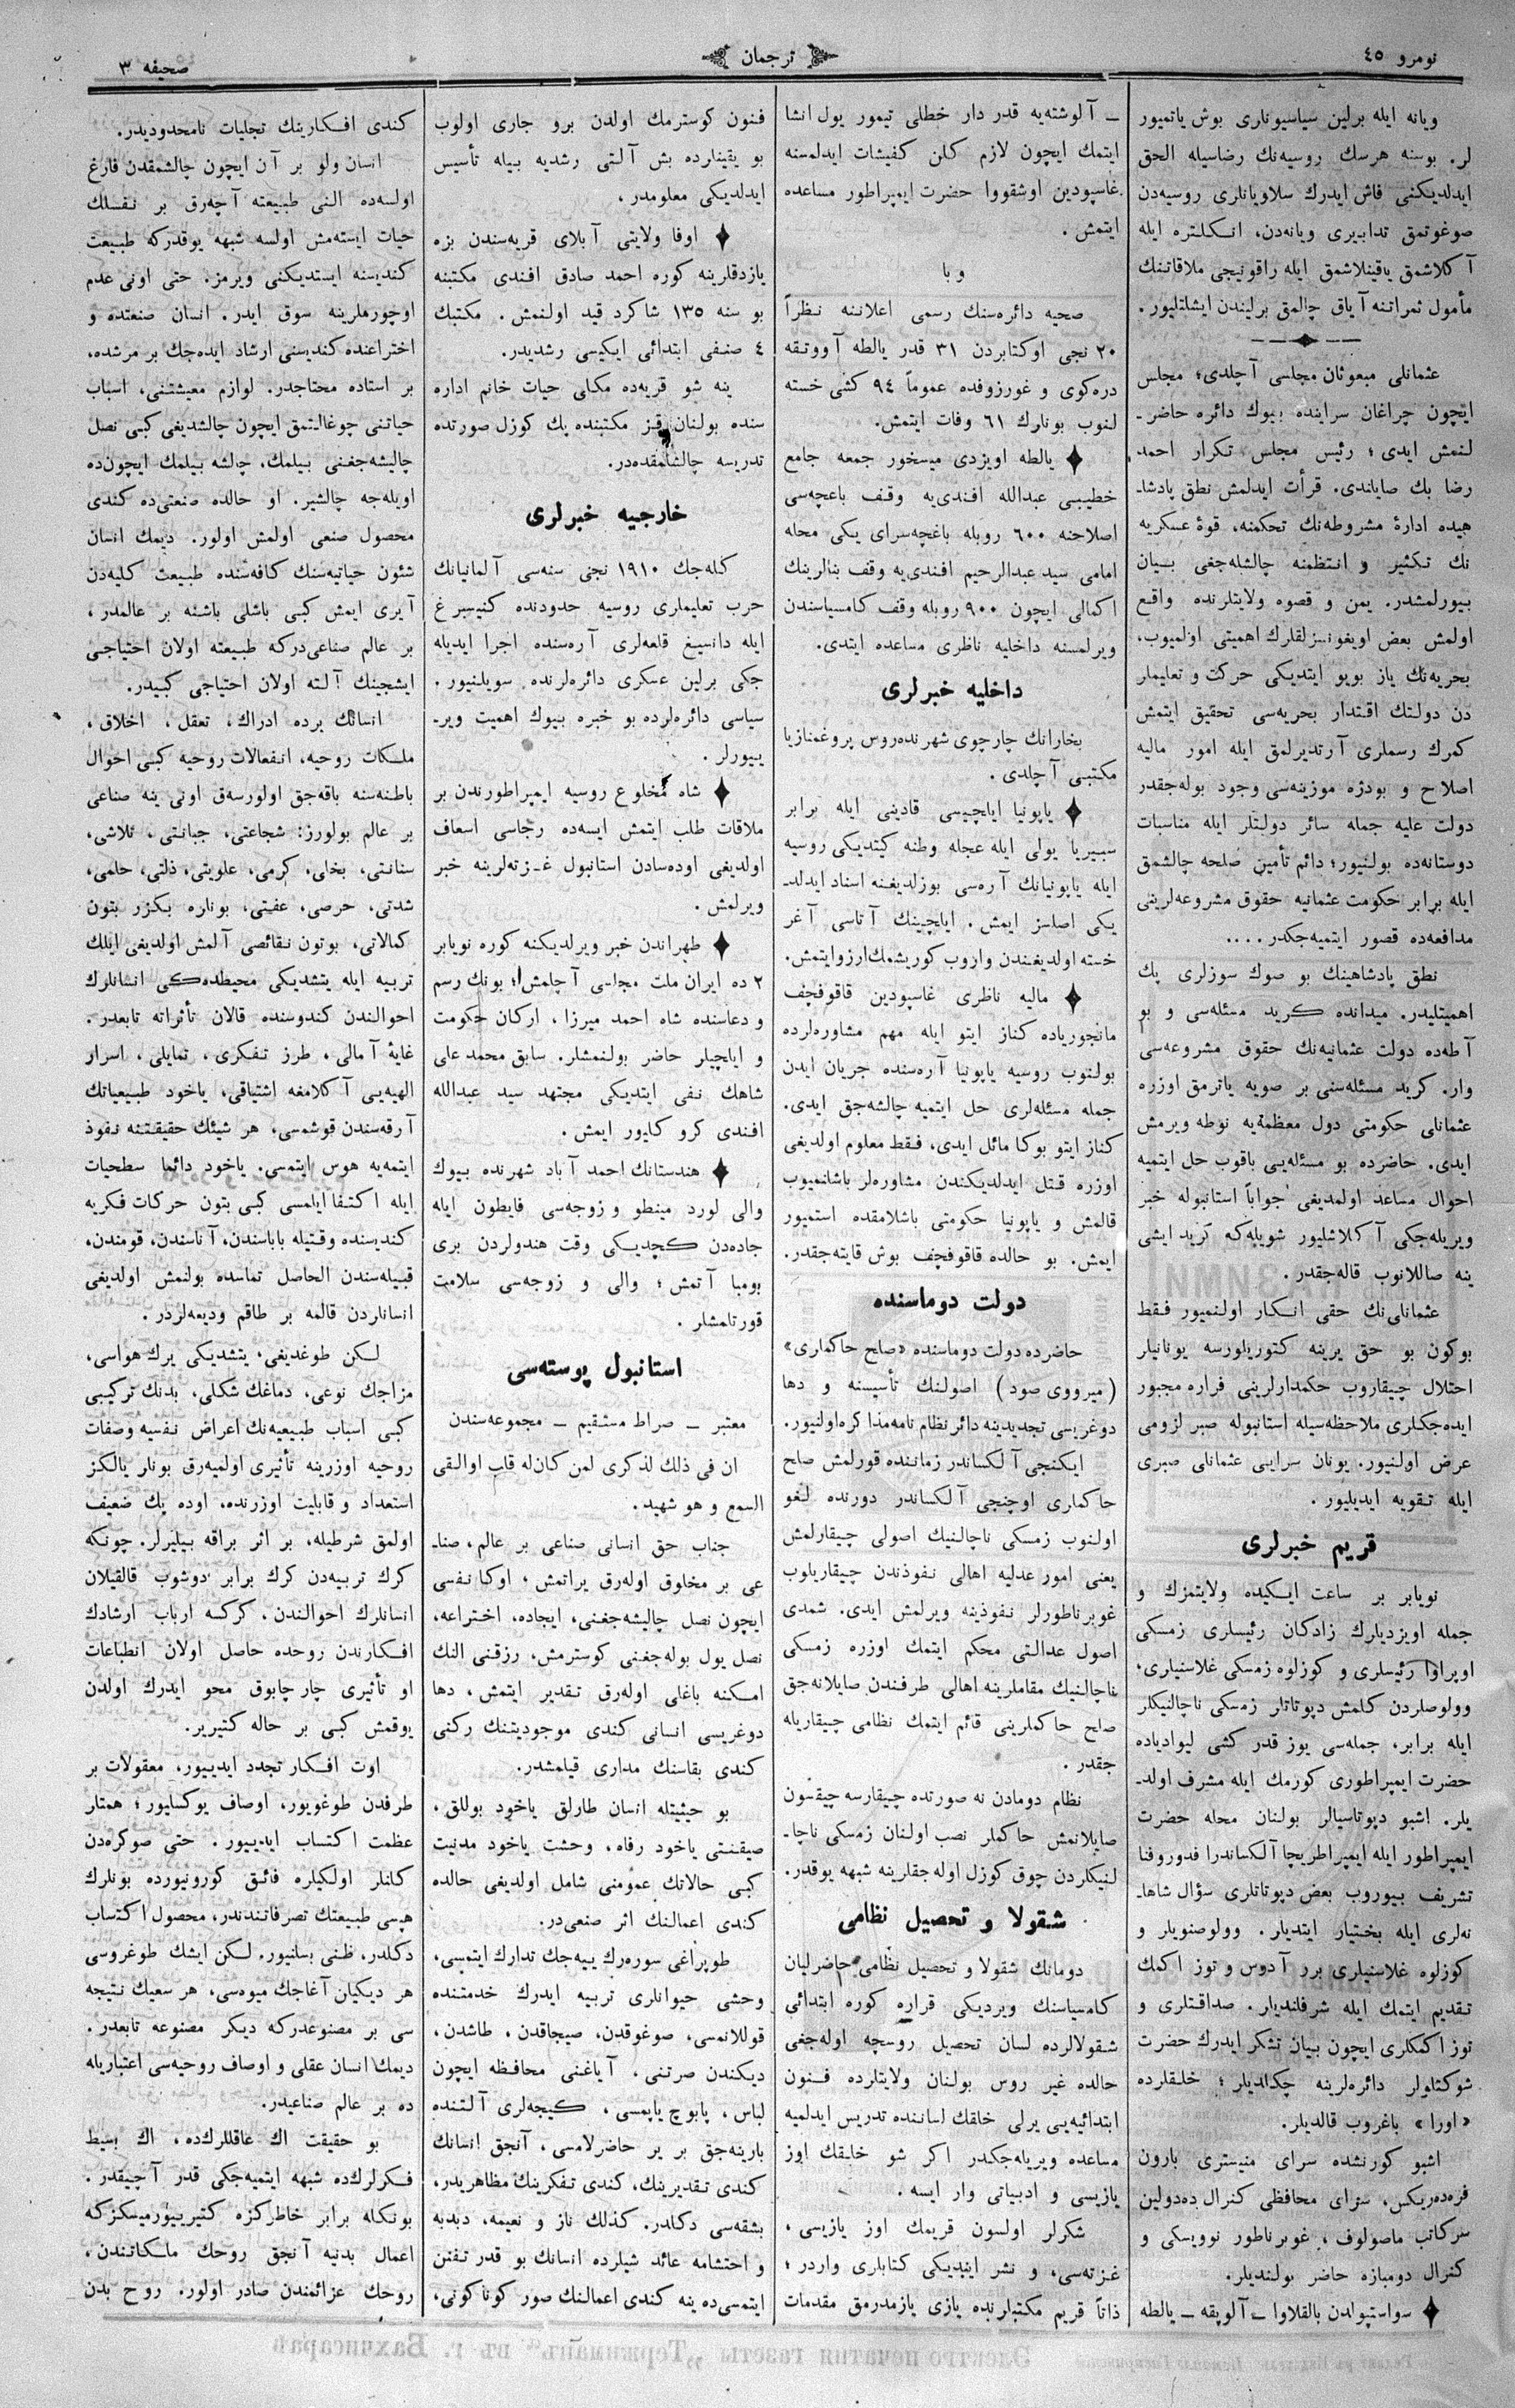 نومرو ٤٥
ترجمان
صحیفه ٣
ویانه ایله برلین سیاسیوناری بوش یاتمیور
لر. بوسنه هرسك روسیه‌نك رضاسیله الحق
ایدلدیکنی فاش ایدرك سلاویانلری روسیه‌دن
صوغوتمق تدابیری ویانه‌دن، انكلتره ایله
آ كلاشمق یاقینلاشمق ایله راقونیجی ملاقاتنك
مأمول ثمراتنه آیاق چالمق برلیندن ایشلتلیور.
عثمانلی مبعوثان مجلسی آچلدی؛ مجلس
ایچون چراغان سراینده بیوك دائره حاضر ـ
لنمش ایدی؛ رئیس مجلس تكرار احمد
رضا بك صایلندی. قرأت ایدلمش نطق پادشاـ
هیده ادارۀ مشروطه‌نك تحكمنه، قوۀ عسكریه
نك تكثیر و انتظمنه چالشله‌جغی بیان
بیورلمشدر. یمن و قصوه ولایتلرنده واقع
اولمش بعض اویغونسزلقلرك اهمیتی اولمیوب،
بحریه‌نك یاز بویو ایتدیكی حركت و تعلیملر
دن دولتك اقتدار بحریه‌سی تحقیق ایتمش
كمرك رسملری آرتدیرلمق ایله امور مالیه
اصلاح و بودژه موزینه‌سی وجود بوله‌جقدر
دولت علیه جمله سائر دولتلر ایله مناسبات
دوستانه‌ده بولنیور؛ دائم تأمین صلحه چالشمق
ایله برابر حكومت عثمانیه حقوق مشروعه‌لرینی
مدافعه‌ده قصور ایتمیه‌جكدر....
نطق پادشاهینك بو صوك سوزلری پك
اهمیتلیدر. میدانده كرید مسئله‌سی و بو
آطه‌ده دولت عثمانیه‌نك حقوق مشروعه‌سی
وار. كرید مسئله‌سنی بر صویه یاترمق اوزره
عثمانلی حكومتی دول معظمه‌یه نوطه ویرمش
ایدی. حاضرده بو مسئله‌یی باقوب حل ایتمیه
احوال مساعد اولمدیغی جواباً استانبوله خبر
ویریله‌جكی آ كلاشلیور شویله‌كه كرید ایشی
ینه صاللانوب قاله‌جقدر.
عثمانلی‌نك حقی انكار اولنمیور فقط
بوكون بو حق یرینه كتوریلورسه یونانیلر
اختلال چیقاروب حكمدارلرینی فراره مجبور
ایده‌جكلری ملاحظه‌سیله استانبوله صبر لزومی
عرض اولنیور. یونان سرایی عثمانلی صبری
ایله تقویه ایدیلیور.
قریم خبرلری
نویابر بر ساعت ایكیده ولایتمزك و
جمله اویزدیلرك زادكان رئیسلری زمسكی
اوپراوا رئیسلری و كوزلوه زمسكی غلاسنیلری،
وولوصلردن كلمش دپوتاتلر زمسكی ناچالنیكلر
ایله برابر، جمله‌سی یوز قدر كشی لیوادیاده
حضرت ایمپراطوری كورمك ایله مشرف اولدـ
یلر. اشبو دپوتاسیالر بولنان محله حضرت
ایمپراطور ایله ایمپراطریچا آلكساندرا فدوروفنا
تشریف بیوروب بعض دپوتاتلری سؤال شاهاـ
نه‌لری ایله بختیار ایتدیلر. وولوصنویلر و
كوزلوه غلاسنیلری برر آدوس و توز اكمك
تقدیم ایتمك ایله شرفلندیلر. صداقتلری و
توز اكمكلری ایچون بیان تشكر ایدرك حضرت
شوكتلولر دائره‌لرینه چكلدیلر؛ خلقلرده
«اورا» باغروب قالدیلر.
اشبو كورنشده سرای منیستری بارون
فره‌ده‌ریكس، سرای محافظی كنرال ده‌دولین
سركاتب ماصولوف، غوبرناطور نوویسكی و
كنرال دومبازه حاضر بولندیلر.
سواستپولدن بالقلاوا ـ آلوپقه ـ یالطه
ـ آلوشته‌یه قدر دار خطلی تیمور یول انشا
ایتمك ایچون لازم كلن كفیشات ایدلمسنه
غاسپودین اوشقووا حضرت ایمپراطور مساعده
ایتمش.
وبا
صحیه دائره‌سنك رسمی اعلاننه نظراً
٢٠ نجی اوكتابردن ٣١ قدر یالطه آووتقه
دره‌كوی و غورزوفده عموماً ٩٤ كشی خسته
لنوب بونلرك ٦١ وفات ایتمش.
یالطه اویزدی میسخور جمعه جامع
خطیبی عبدالله افندی‌یه وقف باغچه‌سی
اصلاحنه ٦٠٠ روبله باغچه‌سرای یكی محله
امامی سید عبدالرحیم افندی‌یه وقف بنالرینك
اكمالی ایچون ٩٠٠ روبله وقف كامسیاسندن
ویرلمسنه داخلیه ناظری مساعده ایتدی.
داخلیه خبرلری
بخارانك چارچوی شهرنده روس پروغمنازیا
مكتبی آچلدی.
یاپونیا ایلچیسی قادینی ایله برابر
سبیریا یولی ایله عجله وطنه كیتدیكی روسیه
ایله یاپونیانك آره‌سی بوزلدیغنه اسناد ایدلدـ
یكی اصلسز ایمش. ایلچینك آتاسی آغر
خسته اولدیغندن واروب كوریشمك ارزو ایتمش.
مالیه ناظری غاسپودین قاقوفچف
مانچوریاده كناز ایتو ایله مهم مشاوره‌لرده
بولنوب روسیه یاپونیا آره‌سنده جریان ایدن
جمله مسئله‌لری حل ایتمیه چالشه‌جق ایدی.
كناز ایتو بوكا مائل ایدی، فقط معلوم اولدیغی
اوزره قتل ایدلدیكندن مشاوره‌لر باشلانمیوب
قالمش و یاپونیا حكومتی باشلامقده استمیور
ایمش. بو حالده قاقوفچف بوش قایته‌جقدر.
دولت دوماسنده
حاضرده دولت دوماسنده «صلح حاكملری»
(میرووی صود) اصولنك تأسیسنه و دها
دوغریسی تجدیدینه دائر نظام نامه مذاكره اولنیور.
ایكنجی آلكساندر زماننده قورلمش صلح
حاكملری اوچنجی آلكساندر دورنده لغو
اولنوب زمسكی ناچالنیك اصولی چیقارلمش
یعنی امور عدلیه اهالی نفوذندن چیقاریلوب
غوبرناطورلر نفوذینه ویرلمش ایدی. شمدی
اصول عدالتی محكم ایتمك اوزره زمسكی
ناچالنیك مقاملرینه اهالی طرفندن صایلانه‌جق
صلح حاكملرینی قائم ایتمك نظامی چیقاریله
جقدر.
نظام دومادن نه صورتده چیقارسه چیقسون
صایلانمش حاكملر نصب اولنان زمسكی ناچاـ
لنیكلردن چوق كوزل اوله‌جقلرینه شبهه یوقدر.
شقولا و تحصیل نظامی
دومانك شقولا و تحصیل نظامی حاضرلیان
كامسیاسنك ویردیكی قراره كوره ابتدائی
شقولالرده لسان تحصیل روسچه اوله‌جغی
حالده غیر روس بولنان ولایتلرده فنون
ابتدائیه‌یی یرلی خلقك لساننده تدریس ایدلمیه
مساعده ویریله‌جكدر اكر شو خلقك اوز
یازیسی و ادبیاتی وار ایسه.
شكرلر اولسون قریمك اوز یازیسی،
غزته‌سی، و نشر ایتدیكی كتابلری واردر؛
ذاتاً قریم مكتبلرنده یازی یازمدرمق مقدمات
فنون كوسترمك اولدن برو جاری اولوب
بو یقینلرده بش آلتی رشدیه بیله تأسیس
ایدلدیكی معلومدر.
اوفا ولایتی آبلای قریه‌سندن بزه
یازدقلرینه كوره احمد صادق افندی مكتبنه
بو سنه ١٣٥ شاكرد قید اولنمش. مكتبك
٤ صنفی ابتدائی ایكیسی رشدیدر.
ینه شو قریه‌ده مكلی حیات خانم اداره
سنده بولنان قز مكتبنده پك كوزل صورتده
تدریسه چالشلمقده‌در.
خارجیه خبرلری
كله‌جك ١٩١٠ نجی سنه‌سی آلمانیانك
حرب تعلیملری روسیه حدودنده كنیسبرغ
ایله دانسیغ قلعه‌لری آره‌سنده اجرا ایدیله
جكی برلین عسكری دائره‌لرنده سویلنیور.
سیاسی دائره‌لرده بو خبره بیوك اهمیت ویرـ
ییورلر.
شاه مخلوع روسیه ایمپراطورندن بر
ملاقات طلب ایتمش ایسه‌ده رجاسی اسعاف
اولدیغی اوده‌سادن استانبول غـزته‌لرینه خبر
ویرلمش.
طهراندن خبر ویرلدیكنه كوره نویابر
٢ ده ایران ملت مجلسی آچلمش؛ بونك رسم
و دعاسنده شاه احمد میرزا، اركان حكومت
و ایلچیلر حاضر بولنمشلر. سابق محمد علی
شاهك نفی ایتدیكی مجتهد سید عبدالله
افندی كرو كلیور ایمش.
هندستانك احمد آباد شهرنده بیوك
والی لورد مینطو و زوجه‌سی فایطون ایله
جاده‌دن كچدیكی وقت هندولردن بری
بومبا آتمش؛ والی و زوجه‌سی سلامت
قورتلمشلر.
استانبول پوسته‌سی
معتبر ـ صراط مستقیم ـ مجموعه‌سندن
ان فی ذلك لذكری لمن كان‌له قلب اوالقی
السمع و هو شهید.
جناب حق انسانی صناعی بر عالم، صناـ
عی بر مخلوق اوله‌رق یراتمش، اوكا نفسی
ایچون نصل چالیشه‌جغنی، ایجاده، اختراعه،
نصل یول بوله‌جغنی كوسترمش، رزقنی النك
امكنه باغلی اوله‌رق تقدیر ایتمش، دها
دوغریسی انسانی كندی موجودیتنك ركنی
كندی بقاسنك مداری قیلمشدر.
بو حیثیتله انسان طارلق یاخود بوللق،
صیقنتی یاخود رفاه، وحشت یاخود مدنیت
كبی حالاتك عمومنی شامل اولدیغی حالده
كندی اعمالنك اثر صنعی‌در.
طوپراغی سوره‌رك ییه‌جك تدارك ایتمسی،
وحشی حیوانلری تربیه ایدرك خدمتنده
قوللانمسی، صوغوقدن، صیجاقدن، طاشدن،
دیكندن صرتنی، آیاغنی محافظه ایچون
لباس، پابوچ یاپمسی، كیجه‌لری آلتنده
بارینه‌جق بر یر حاضرلامسی، آنجق انسانك
كندی تقدیرینك، كندی تفكرینك مظاهریدر،
بشقه‌سی دكلدر. كذلك ناز و نعیمه، دبدبه
و احتشامه عائد شیلرده انسانك بو قدر تفنن
ایتمسی‌ده ینه كندی اعمالنك صور كوناكونی،
كندی افكارینك تجلیات نامحدودیدر.
انسان ولو بر آن ایچون چالشمقدن فارغ
اولسه‌ده النی طبیعته آچه‌رق بر نفسلك
حیات ایسته‌مش اولسه شبهه یوقدركه طبیعت
كندیسنه ایستدیكنی ویرمز. حتی اونی عدم
اوچورملرینه سوق ایدر. انسان صنعتده و
اختراعنده كندیسنی ارشاد ایده‌جك بر مرشده،
بر استاده محتاجدر. لوازم معیشتنی، اسباب
حیاتنی چوغالتمق ایچون چالشدیغی كبی نصل
چالیشه‌جغنی بیلمك، چالشه بیلمك ایچون‌ده
اویله‌جه چالشیر. او حالده صنعتی‌ده كندی
محصول صنعی اولمش اولور. دیمك انسان
شئون حیاتیه‌سنك كافه‌سنده طبیعت كلیه‌دن
آیری ایمش كبی باشلی باشنه بر عالمدر،
بر عالم صناعی‌دركه طبیعته اولان احتیاجی
ایشجینك آلته اولان احتیاجی كبیدر.
انسانك برده ادراك، تعقل، اخلاق،
ملكات روحیه، انفعالات روحیه كبی احوال
باطنه‌سنه باقه‌جق اولورسه‌ق اونی ینه صناعی
بر عالم بولورز: شجاعتی، جبانتی، تلاشی،
سنانتی، بخلی، كرمی، علویتی، ذلتی، حلمی،
شدتی، حرصی، عفتی، بونلره بكزر بتون
كمالاتی، بوتون نقائصی آلمش اولدیغی ایلك
تربیه ایله یتشدیكی محیطده‌كی انسانلرك
احوالندن كندوسنده قالان تأثراته تابعدر.
غایۀ آمالی، طرز تفكری، تمایلی، اسرار
الهیه‌یی آ كلامغه اشتیاقی، یاخود طبیعیاتك
آرقه‌سندن قوشمسی، هر شیئك حقیقتنه نفوذ
ایتمه‌یه هوس ایتمسی. یاخود دائما سطحیات
ایله اكتفا ایلمسی كبی بتون حركات فكریه
كندیسنده وقتیله باباسندن، آناسندن، قومندن،
قبیله‌سندن الحاصل تماسده بولنمش اولدیغی
انسانلردن قالمه بر طاقم ودیعه‌لردر.
لكن طوغدیغی، یتشدیكی یرك هواسی،
مزاجك نوعی، دماغك شكلی، بدنك تركیبی
كبی اسباب طبیعیه‌نك اعراض نفسیه وصفات
روحیه اوزرینه تأثیری اولمیه‌رق بونلر یالكز
استعداد و قابلیت اوزرنده، اوده پك ضعیف
اولمق شرطیله، بر اثر براقه بیلیرلر. چونكه
كرك تربیه‌دن كرك برابر دوشوب قالقیلان
انسانلرك احوالندن، كركسه ارباب ارشادك
افكارندن روحده حاصل اولان انطباعات
او تأثیری چارچابوق محو ایدرك اولدن
یوقمش كبی بر حاله كتیریر.
اوت افكار تجدد ایدییور، معقولات بر
طرفدن طوغویور، اوصاف یوكسلیور؛ همتلر
عظمت اكتساب ایدییور. حتی صوكره‌دن
كلنلر اولكیلره فائق كورونیورده بونلرك
هپسی طبیعتك تصرفاتندندر، محصول اكتساب
دكلدر، ظنی بسلنیور. لكن ایشك طوغروسی
هر دیكیلن آغاجك میوه‌سی، هر سعیك نتیجه
سی بر مصنوعدركه دیكر مصنوعه تابعدر.
دیمك انسان عقلی و اوصاف روحیه‌سی اعتباریله
ده بر عالم صناعیدر.
بو حقیقت اك عاقللرك‌ده، اك بسیط
فكرلرك‌ده شبهه ایتمیه‌جكی قدر آچیقدر.
بونكله برابر خاطركزه كتیرییورمیسكزكه
اعمال بدنیه آنجق روحك ملكاتندن،
روحك عزائمندن صادر اولور. روح بدن